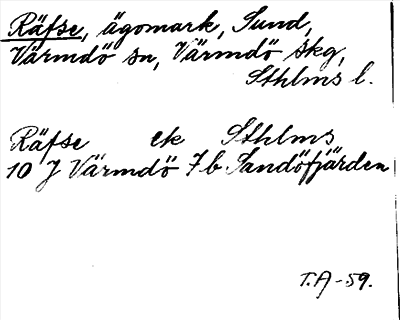 Räfse, ägomark, Sund,
Värmdö sn, Värmdö skg,
Sthlms l.
Räfse ek Sthlms
10 J Värmdö 7 b Sandöfjärden
T.A-59.